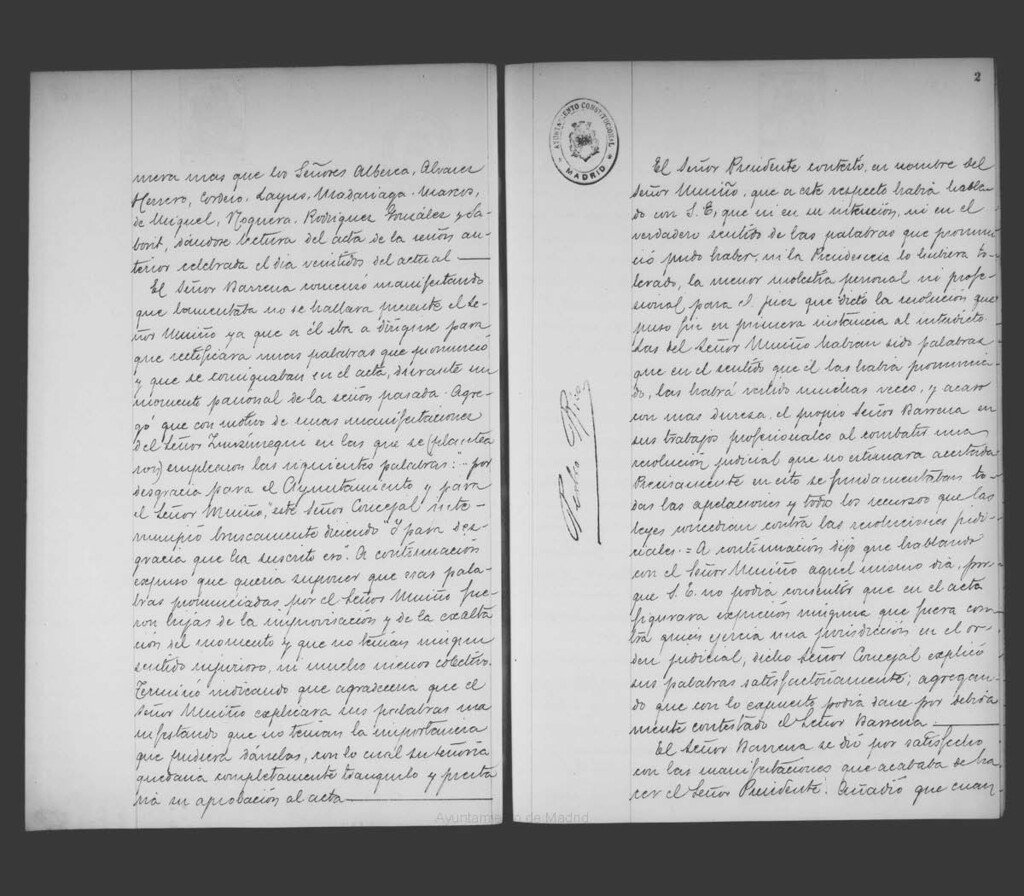 mera mas que los Señores Alberca, Alvarez
Herrero, Cordero, Layus, Madariaga, Marcos,
de Miguel, Noguera, Rodriguez González y Sa-
borit, dándose lectura del acta de la sesión an-
terior celebrada el dia veintidos del actual
El Señor Barrena comenzó manifestando
que lamentaba no se hallara presente el Se-
ñor Muiño ya que a él iba a dirigirse para
que rectificara unas palabras que pronunció
y que se consignaban en el acta, durante un
momento pasional de la sesión pasada. Agre-
gó que con motivo de unas manifestaciones
del Señor Zunzúnegui en las que se
emplearon las siguientes palabras: "por
desgracia para el Ayuntamiento y para
el Señor Muiño," este Señor Concejal inte-
rrumpió bruscamente diciendo "Y para des-
gracia que ha suscrito eso". A continuación
expuso que queria suponer que esas pala-
bras pronunciadas por el Señor Muiño fue-
ron hijas de la improvisación y de la exalta
ción del momento y que no tenian ningun
sentido injurioso, ni mucho menos colectivo.
Terminó indicando que agradeceria que el
Señor Muiño explicara sus palabras ma
nifestando que no tenian la importancia
que pudiera dárselas, con lo cual su señoria
quedaria completamente tranquilo y presta
ria su aprobación al acta
2
AYUNTAMIENTO CONSTITUCIONAL
MADRID
El Señor Presidente contestó, en nombre del
Señor Muiño, que a este respecto habia habla
do con S.E, que ni en su intención, ni en el
verdadero sentido de las palabras que pronun-
ció pudo haber, ni la Presidencia lo hubiera to-
lerado, la menor molestia personal ni profe-
sional, para el juez que dictó la resolución que
puso fin en primera instancia al interdicto.
Las del Señor Muiño habian sido palabras
que en el sentido que él las habia pronuncia-
do, las habrá vertido muchas veces, y acaso
con mas dureza, el propio Señor Barrena en
sus trabajos profesionales al combatir una
resolución judicial que no estimara acertada
Precisamente en esto se fundamentaban to-
das las apelaciones y todo los recursos que las
leyes concedian contra las resoluciones judi-
ciales. = A continuación dijo que hablando
con el Señor Muiño aquel mismo dia, por-
que S.E. no podia consentir que en el acta
figurara expresión ninguna que fuera con-
tra quien ejercia una jurisdicción en el or-
den judicial, dicho Señor Concejal explicó
sus palabras satisfactoriamente; agregan-
do que con lo expuesto podia darse por debida
mente contestado el Señor Barrena
El Señor Barrena se dió por satisfecho
con las manifestaciones que acababa de ha
cer el Señor Presidente. Añadió que cuan-
Ayuntamiento de Madrid